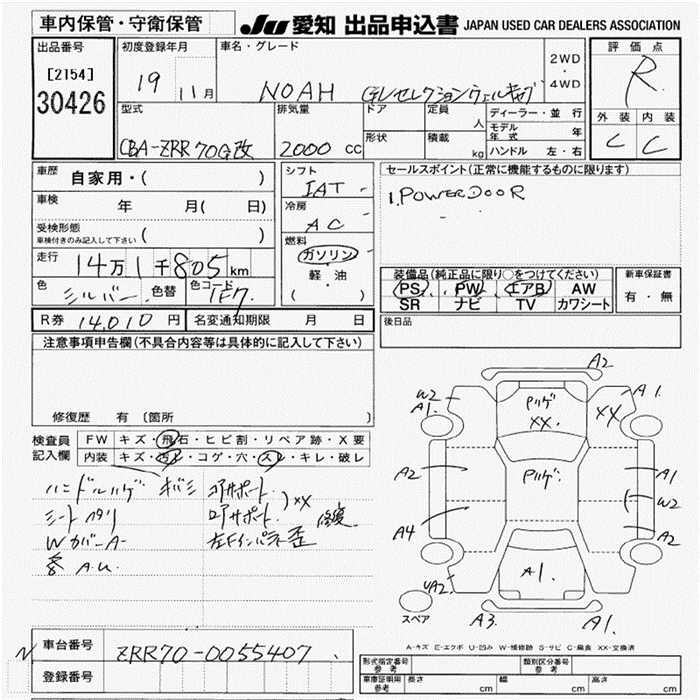 車内保管・守衛保管
JU 愛知 出品申込書 JAPAN USED CAR DEALERS ASSOCIATION
出品番号
[2154]
30426
初度登録年月
19 11月
車名・グレード
NOAH
2WD
・
4WD
評価点
R
外装 内装
C C
型式
CBA-ZRR70G改
排気量
2000 CC
ドア
形状
定員
人
積載
kg
ディーラー・並行
モデル年式 年
ハンドル 左・右
車歴
自家用・( )
車検
年 月( 日)
受検形態
車検付きのみ記入して下さい ( )
走行
14万1千805km
色
シルバー
色替
色コード
1F7
シフト
IAT
冷房
AC
燃料
ガソリン
軽・油
( )
セールスポイント(正常に機能するものに限ります)
1.POWER DOOR
装備品(純正品に限り○をつけてください)
PS PW エアB AW
SR ナビ TV カワシート
新車保証書
有・無
R券 14,010円
名変通知期限 月 日
後日品
注意事項申告欄(不具合内容等は具体的に記入して下さい)
修復歴 有〔箇所 〕
検査員記入欄
FW キズ・飛石・ヒビ割・リペア跡・X要
内装 キズ・汚レ・コゲ・穴・スレ・キレ・破レ
ハンドルハゲ
コアサポート
XX
シートヘタリ
ロアサポート
WカバーA-
左Fインパネ歪
A.U.
A2
W2
A1.
A1.
XX
XX
A2
A1
W2
A4
A2
A1.
UA2
スペア
A3.
A1.
A-キズ E-エクボ U-凹み W-補修跡 S-サビ C-腐食 XX-交換済
車台番号
ZRR70-0055407
登録番号
形式指定番号
参考
類別区分番号
参考
車庫証明用
参考
長さ cm
幅 cm
高さ cm